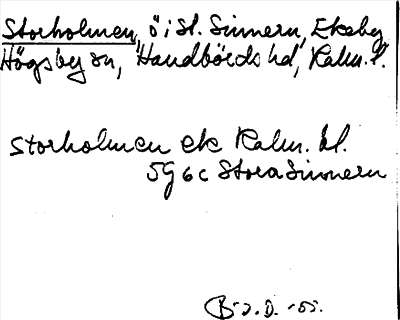 Storholmen, ö i St. Sinnern, Ekeby
Högsby sn, Handbörds hd, Kalm. l.
Storholmen ek Kalm. bl.
5G 6c Stora Sinnern